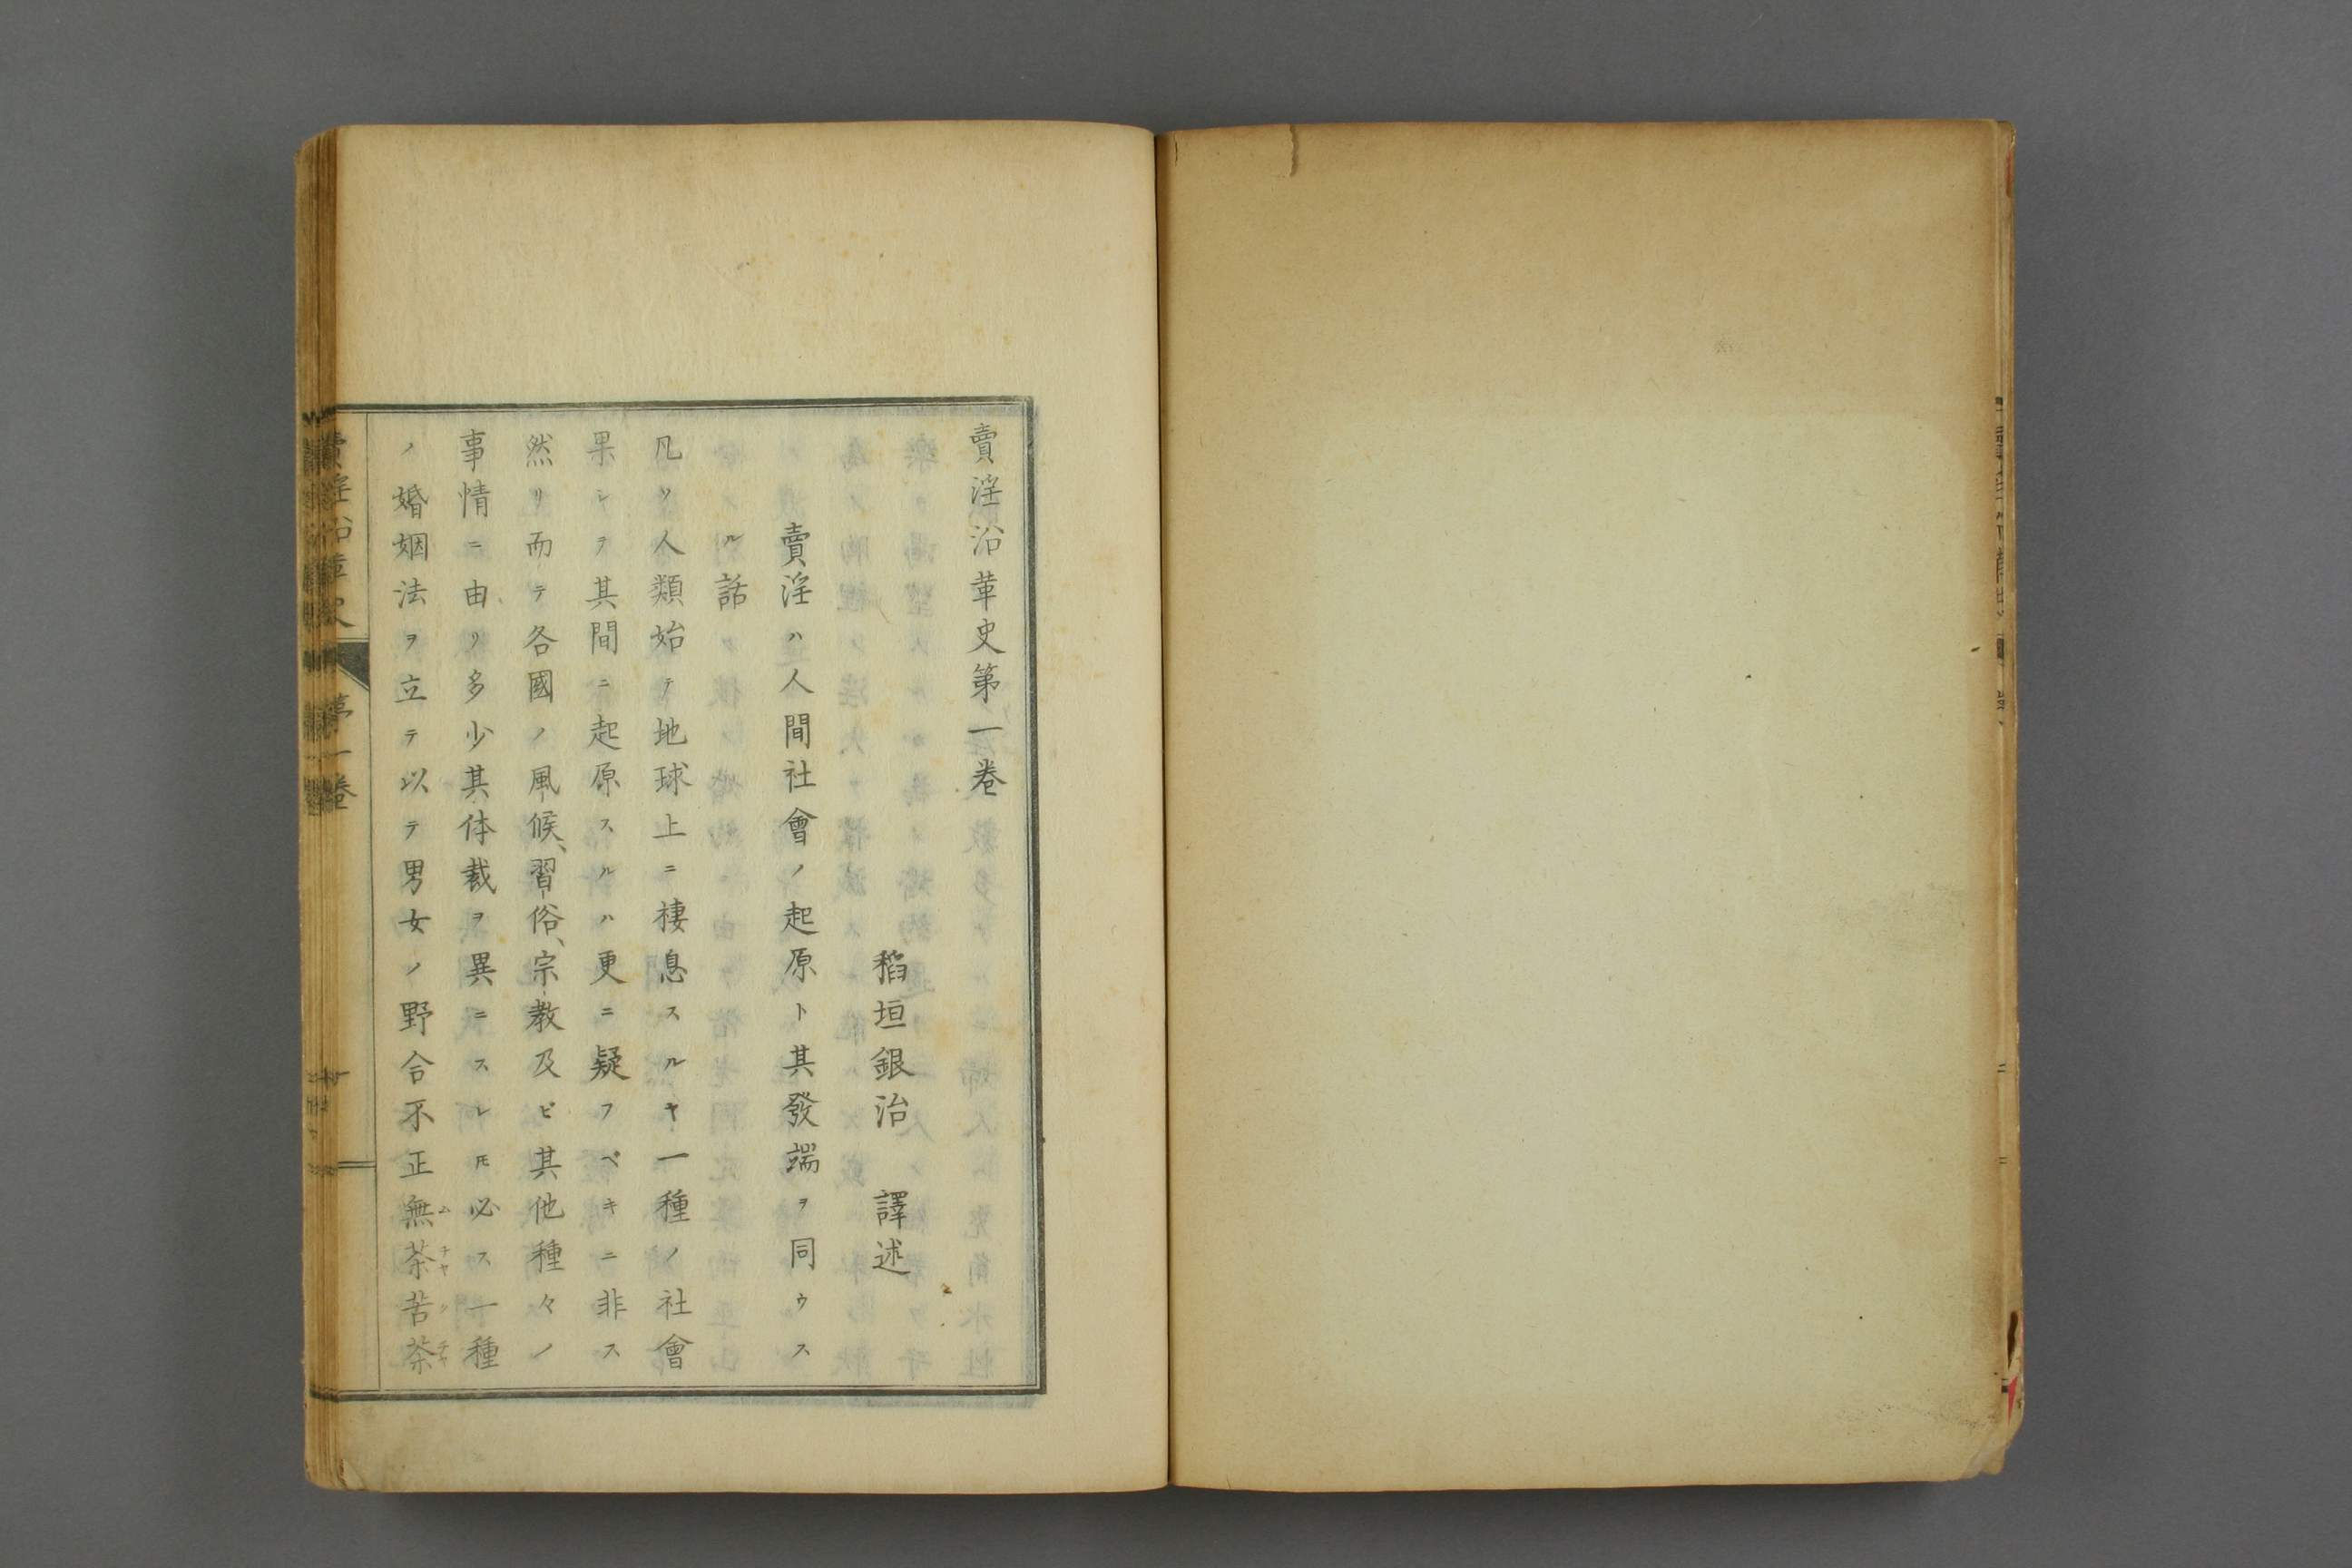 賣淫沿革史第一卷
稻垣銀治 譯述
賣淫ハ人間社會ノ起原ト其發端ヲ同ウス
ル話
凡ソ人類始テ地球上ニ棲息スルヤ一種ノ社會
果シテ其間ニ起原スルハ更ニ疑フベキニ非ス
然リ而テ各國ノ風候、習俗、宗教及ビ其他種々ノ
事情ニ由リ多少其体裁ヲ異ニスレ𪜈必ス一種
ノ婚姻法ヲ立テ以テ男女ノ野合不正無茶苦茶
ムチヤクチヤ
賣淫沿革史 第一卷